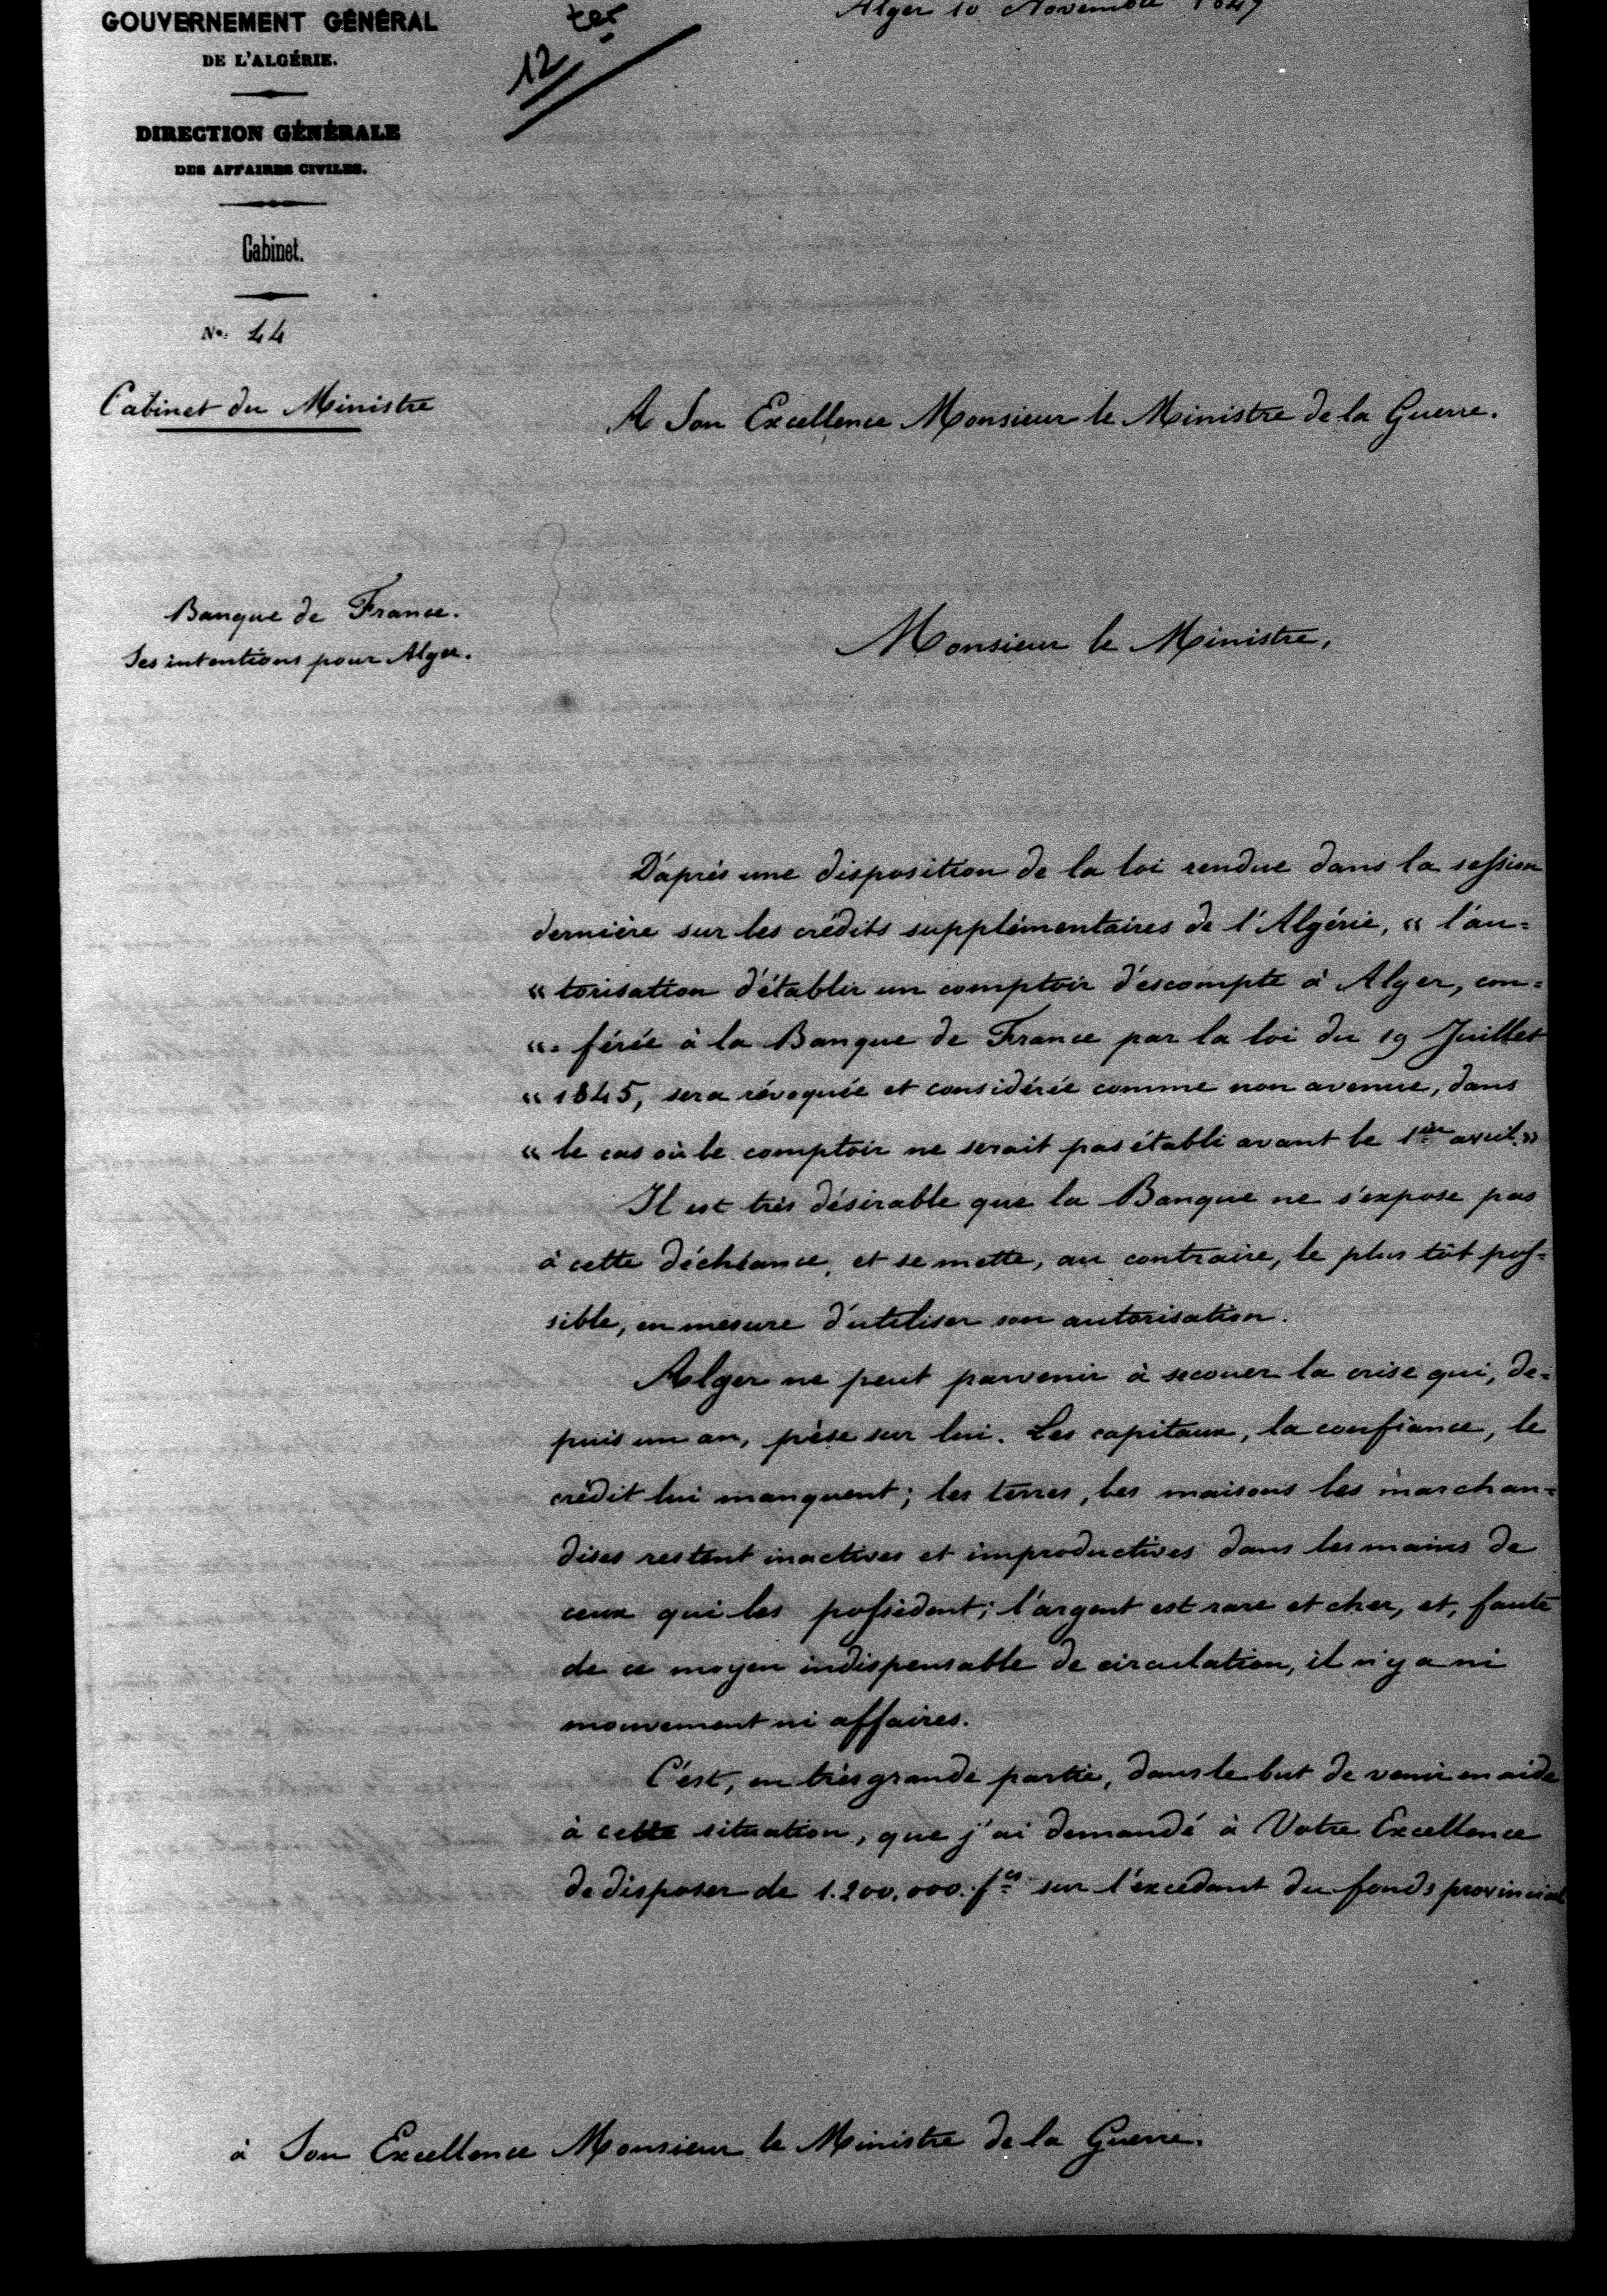 GOUVERNEMENT GÉNÉRAL
DE L'ALGÉRIE.
DIRECTION GÉNÉRALE
DES AFFAIRES CIVILES.
Cabinet.
N°. 44
Cabinet du Ministre
12 ter
Alger 10 Novembre 1847
A Son Excellence Monsieur le Ministre de la Guerre.
Banque de France.
Ses intentions pour Alger.
Monsieur le Ministre,
D'après une disposition de la loi rendue dans la session
dernière sur les crédits supplémentaires de l'Algérie, « l'au=
« torisation d'établir un comptoir d'escompte à Alger, con=
« = férée à la Banque de France par la loi du 19 Juillet
« 1845, sera révoquée et considérée comme non avenue, dans
« le cas où le comptoir ne serait pas établi avant le 1er avril. »
Il est très désirable que la Banque ne s'expose pas
à cette déchéance, et se mette, au contraire, le plus tôt pos=
sible, en mesure d'utiliser son autorisation.
Alger ne peut parvenir à secouer la crise qui, de=
puis un an, pèse sur lui. Les capitaux, la confiance, le
crédit lui manquent ; les terres, les maisons les marchan=
dises restent inactives et improductives dans les mains de
ceux qui les possèdent ; l'argent est rare et cher, et, faute
de ce moyen indispensable de circulation, il n'y a ni
mouvement ni affaires.
C'est, en très grande partie, dans le but de venir en aide
à cette situation, que j'ai demandé à Votre Excellence
de disposer de 1.200.000. fcs sur l'excédant du fonds provincial
à Son Excellence Monsieur le Ministre de la Guerre.